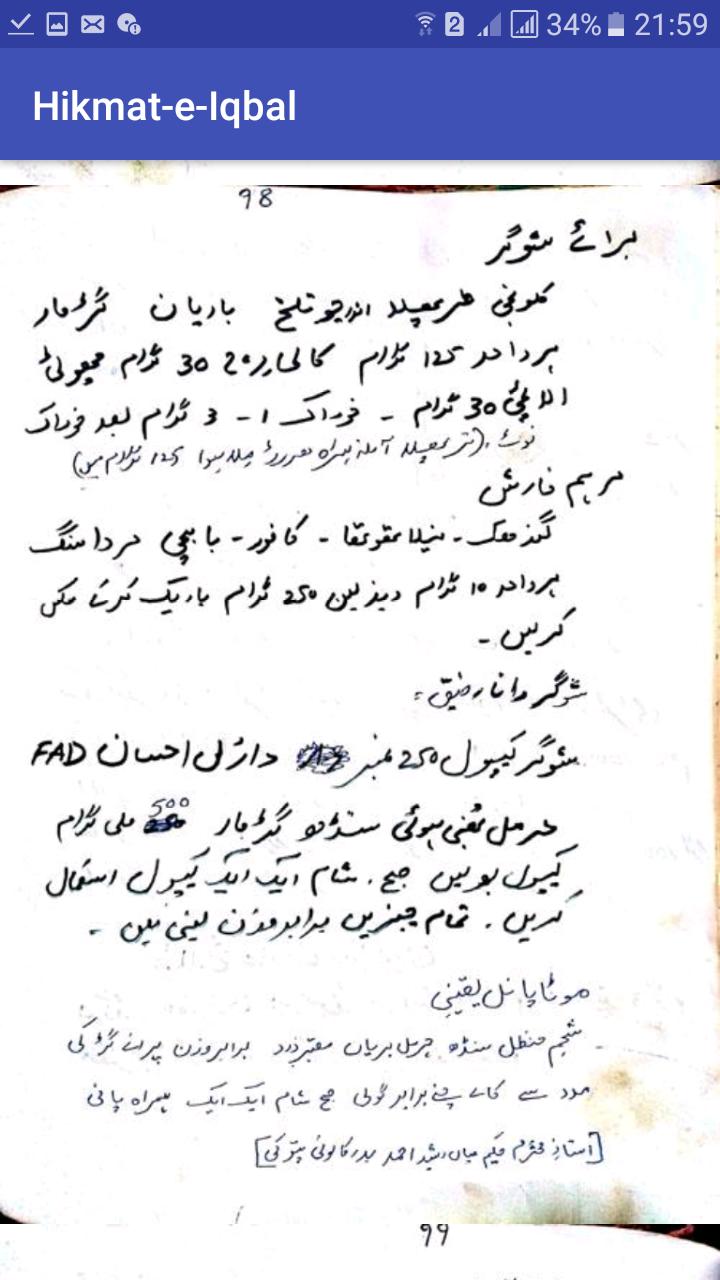 34% 21:59
Hikmat-e-Iqbal
98
برائے شوگر
کلونجی تریپھلہ اندرجو تلخ بادیان گڑمار
ہرواحد 125 گرام کالی مرچ 30 گرام چھوٹی
الائچی 30 گرام ۔ خوراک 1 - 3 گرام بعد خوراک
نوٹ ۔ (تریپھلہ آملہ بہیڑہ ملا ہوا 125 گرام میں)
مرہم خارش
گندھک ۔ نیلا تھوتھا ۔ کافور ۔ بابچی مردا سنگ
ہرواحد 10 گرام ویزلین 250 گرام باریک کرکے مکس
کریں ۔
شوگر دانا رفیق
شوگر کیپسول 250 نمبر احسان FAD
حرمل بھنی ہوئی سنڈھ گڑمار 500 ملی گرام
کیپسول بھریں صبح ۔ شام ایک ایک کیپسول استعمال
کریں ۔ تمام چیزیں برابر وزن لینی ہیں ۔
موٹاپا یقینی
شحم حنظل سنڈھ حرمل بریاں زرد برابر وزن پرانے گڑ کی
مدد سے کالے چنے برابر گولی صبح شام ایک ایک ہمراہ پانی
[استاذ محترم حکیم میاں رشید احمد کالونی پتوکی]
99